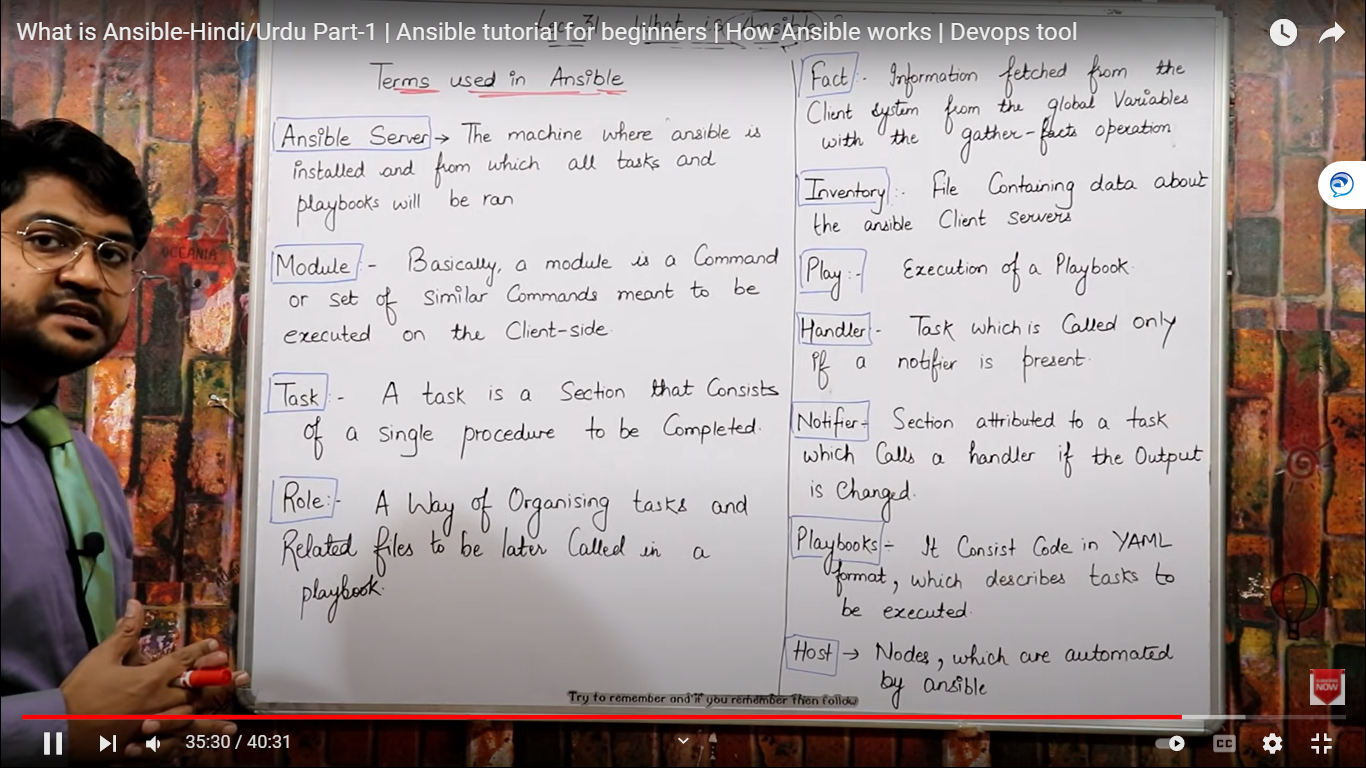 What is Ansible-Hindi/Urdu Part-1 | Ansible tutorial for beginners | How Ansible works | Devops tool
What is Ansible
Terms used in Ansible
Ansible Server → The machine where ansible is
installed and from which all tasks and
playbooks will be ran
Module :- Basically, a module is a Command
or set of similar Commands meant to be
executed on the Client-side.
Task :- A task is a Section that Consists
of a single procedure to be Completed.
Role:- A Way of Organising tasks and
Related files to be later Called in a
playbook.
Fact :- Information fetched from the
Client system from the global Variables
with the gather-facts operation
Inventory :- File Containing data about
the ansible Client servers
Play :- Execution of a Playbook.
Handler - Task which is Called only
if a notifier is present.
Notifier - Section attributed to a task
which Calls a handler if the Output
is Changed.
Playbooks - It Consist Code in YAML
format, which describes tasks to
be executed.
Host → Nodes, which are automated
by ansible
OCEANIA
Try to remember and if you remember then follow
NOW
35:30 / 40:31
CC